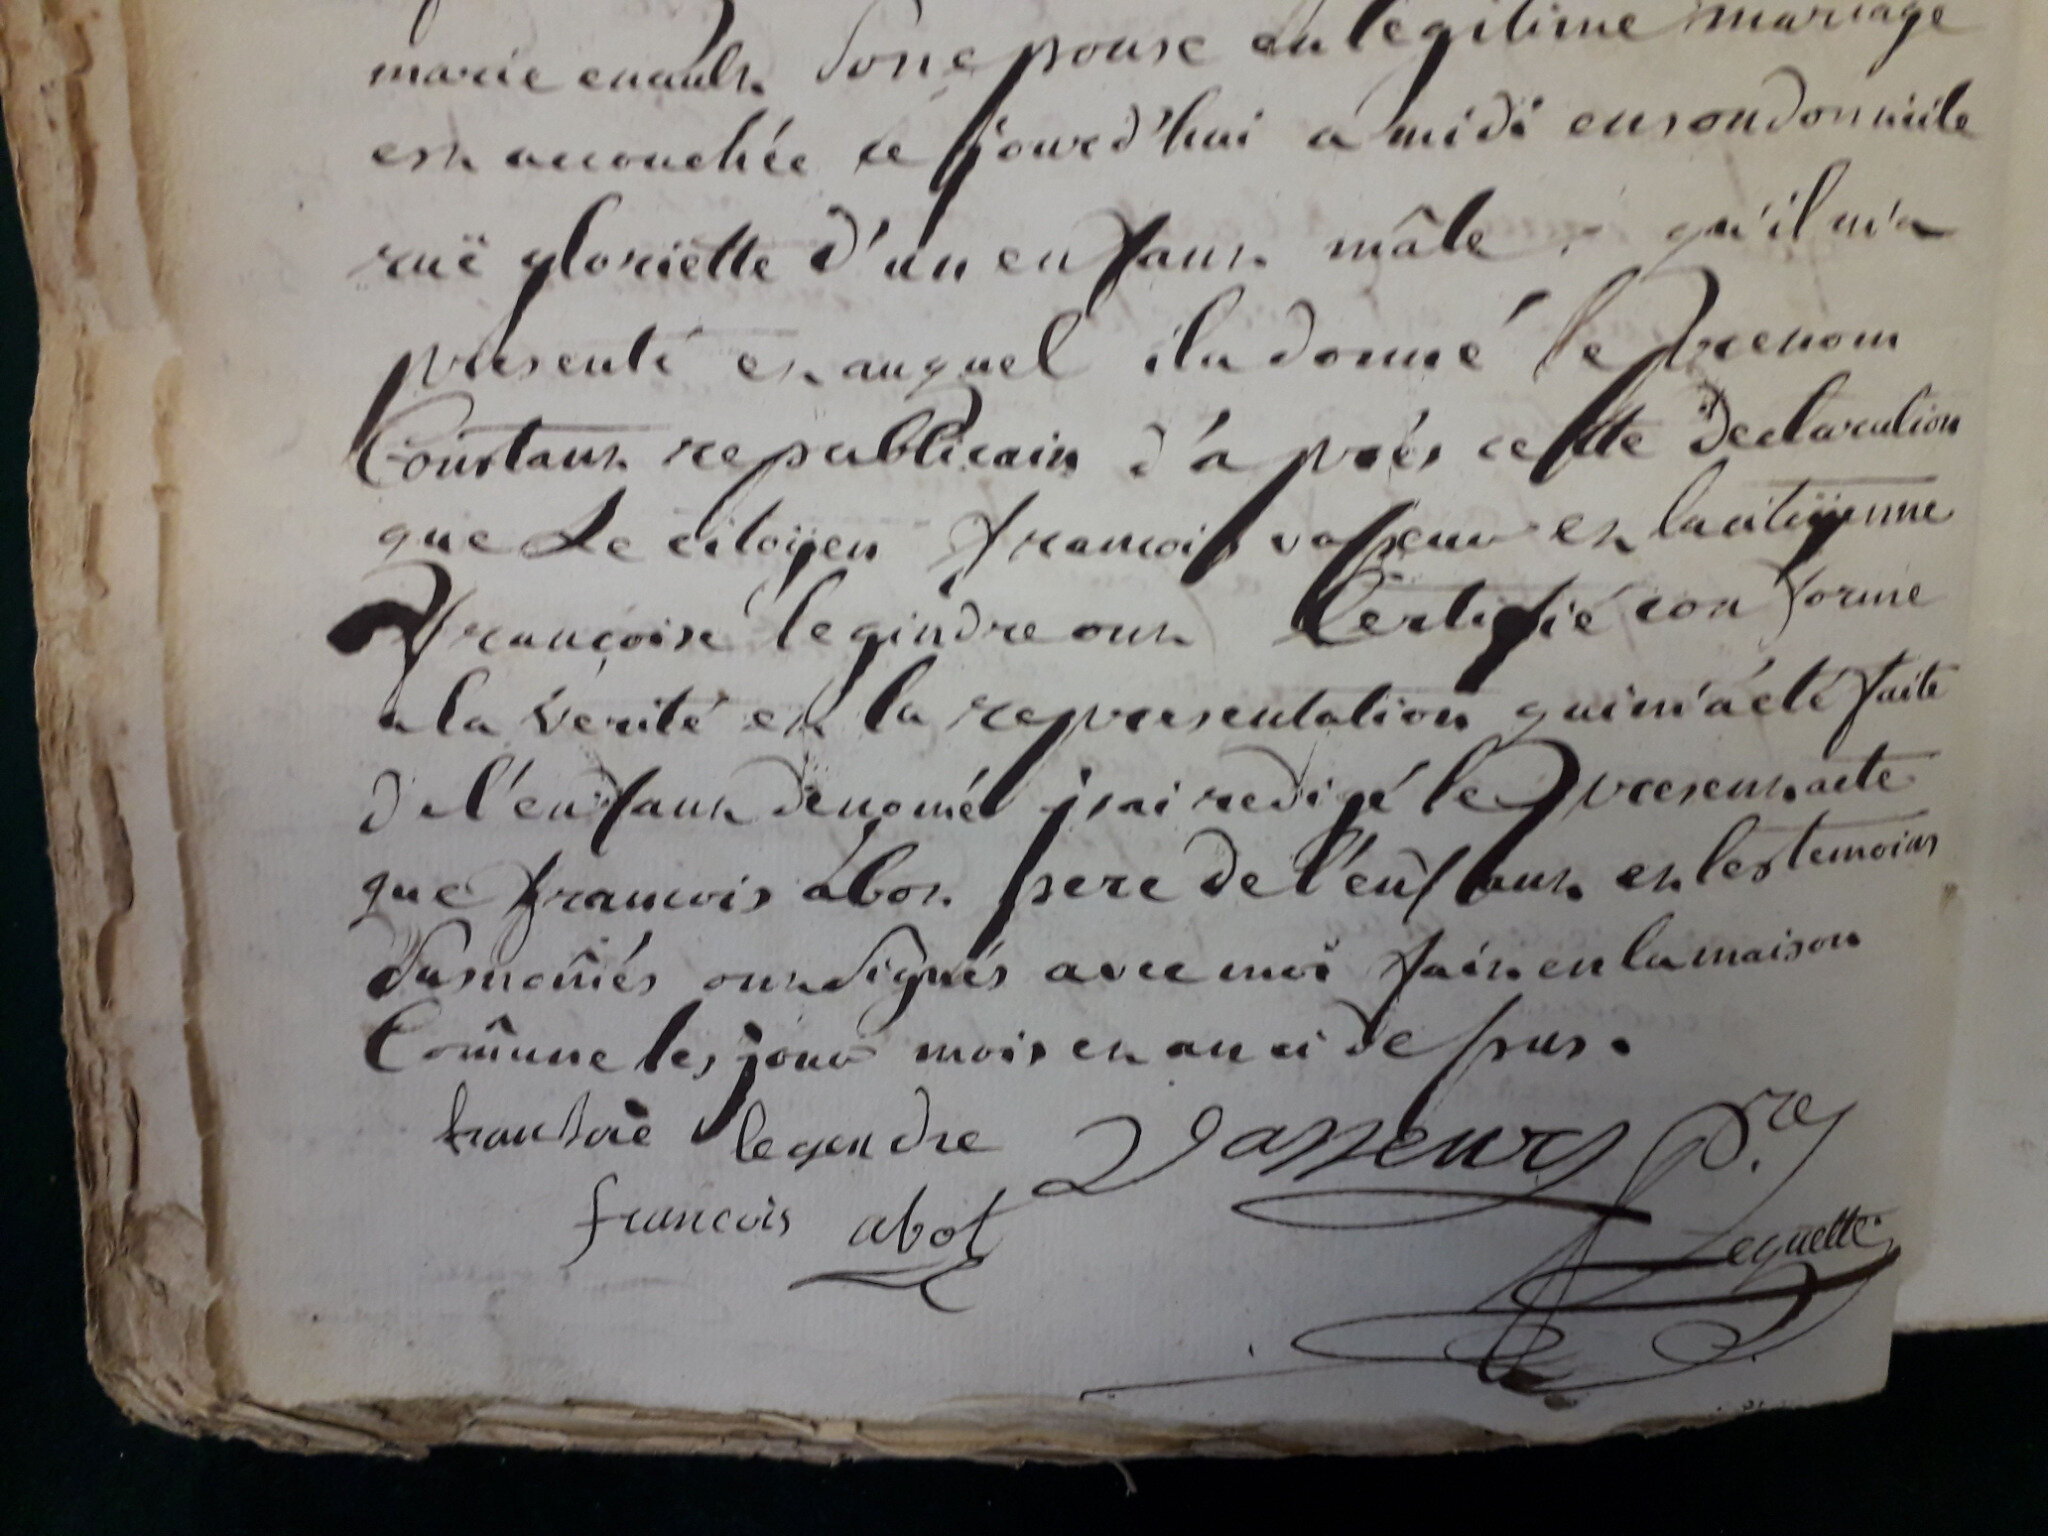 marie enault son epouse en legitime mariage
est accouchée ce jourd'hui a midi en son domicile
ruë gloriette d'un enfant mâle, qu'il m'a
presenté et auquel il a donné le prenom
Constant republicain d'aprés cette declaration
que Le citoÿen francois vasseur et la citoÿenne
françoise legindre ont Certifié conforme
a la vérité et la representation qui m'a été faite
de l'enfant denomé j'ai redigé le present acte
que francois abot pere de l'enfant et les temoins
susnom̃és ont signés avec moi fait en la maison
Com̃une les jour mois et an ci depus.
fransoie legendre Vasseur
francois abot Leguette